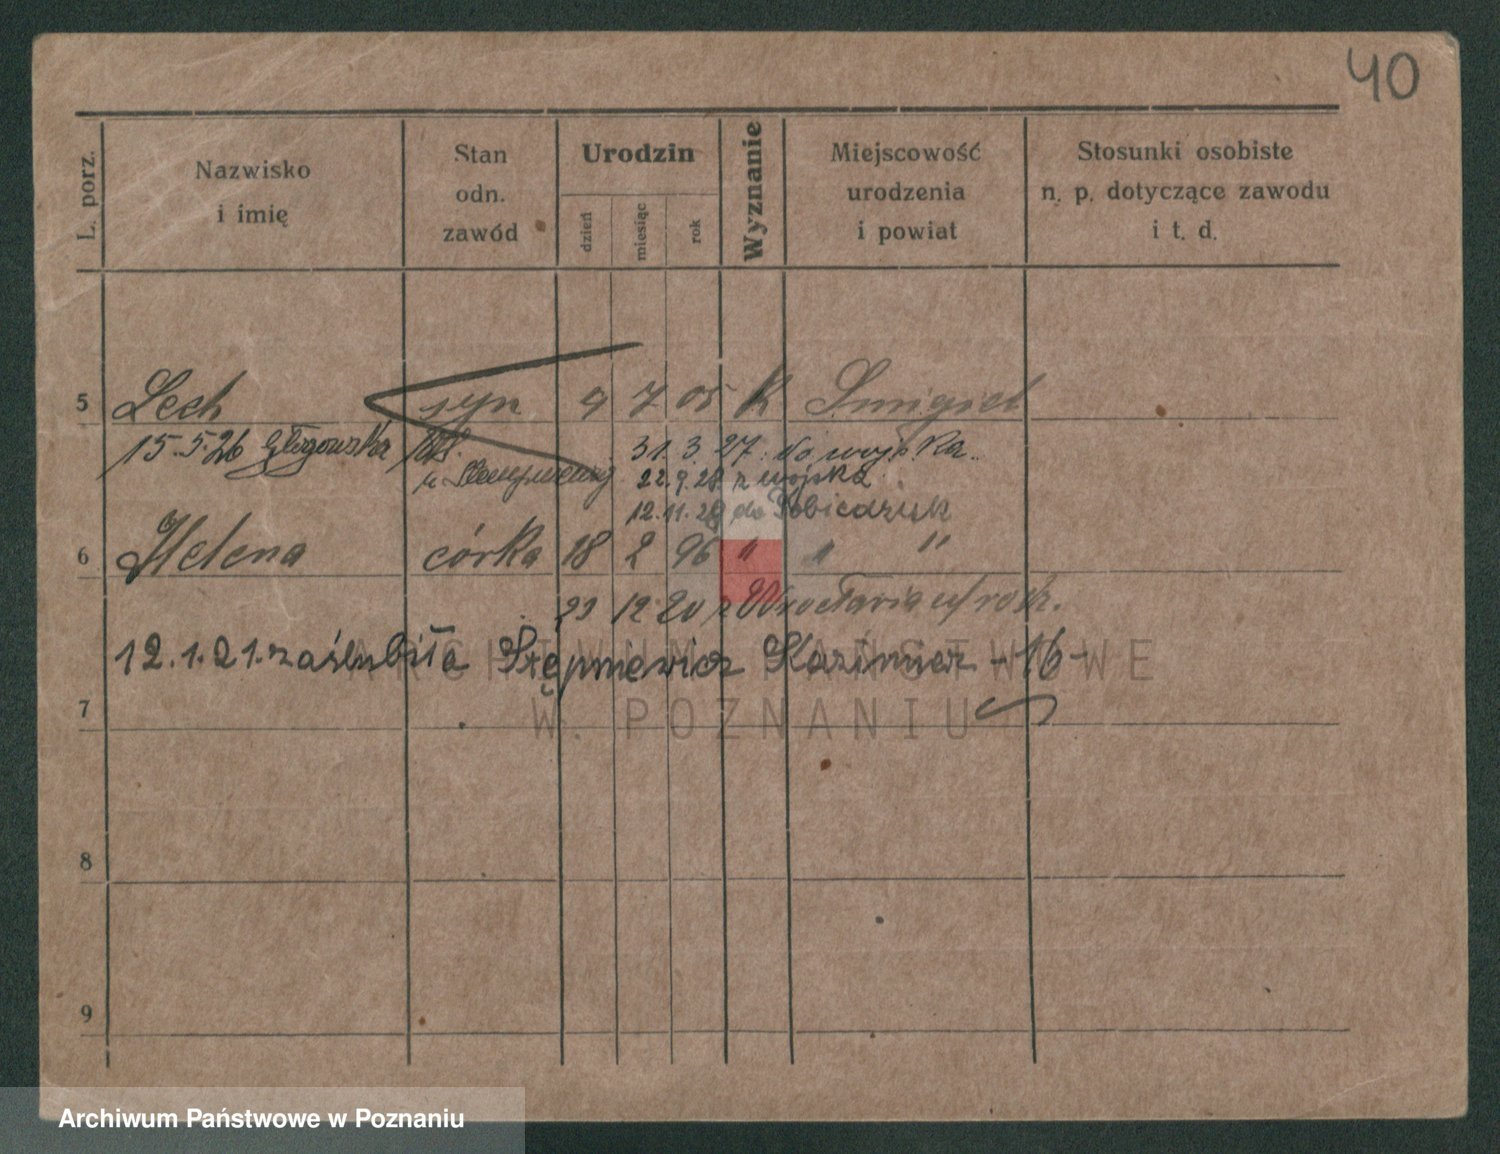 40
L. porz.
Nazwisko i imię
Stan odn. zawód
Urodzin
dzień miesiąc rok
Wyznanie
Miejscowość urodzenia i powiat
Stosunki osobiste n. p. dotyczące zawodu i t. d.
5 Lech syn 9 7 05 K Śmigiel
15.5.26 Głogowska
31.3.27. do wojska.
22.9.28 z wojska
12.11.28 do Pobiedzisk
6 Helena córka 18 2 96 " " "
23 12 20 z Wrocławia
12.1.21. zaślubiła Stępniewicz Kazimierz -16-
7
8
9
ARCHIWUM PAŃSTWOWE
W POZNANIU
Archiwum Państwowe w Poznaniu